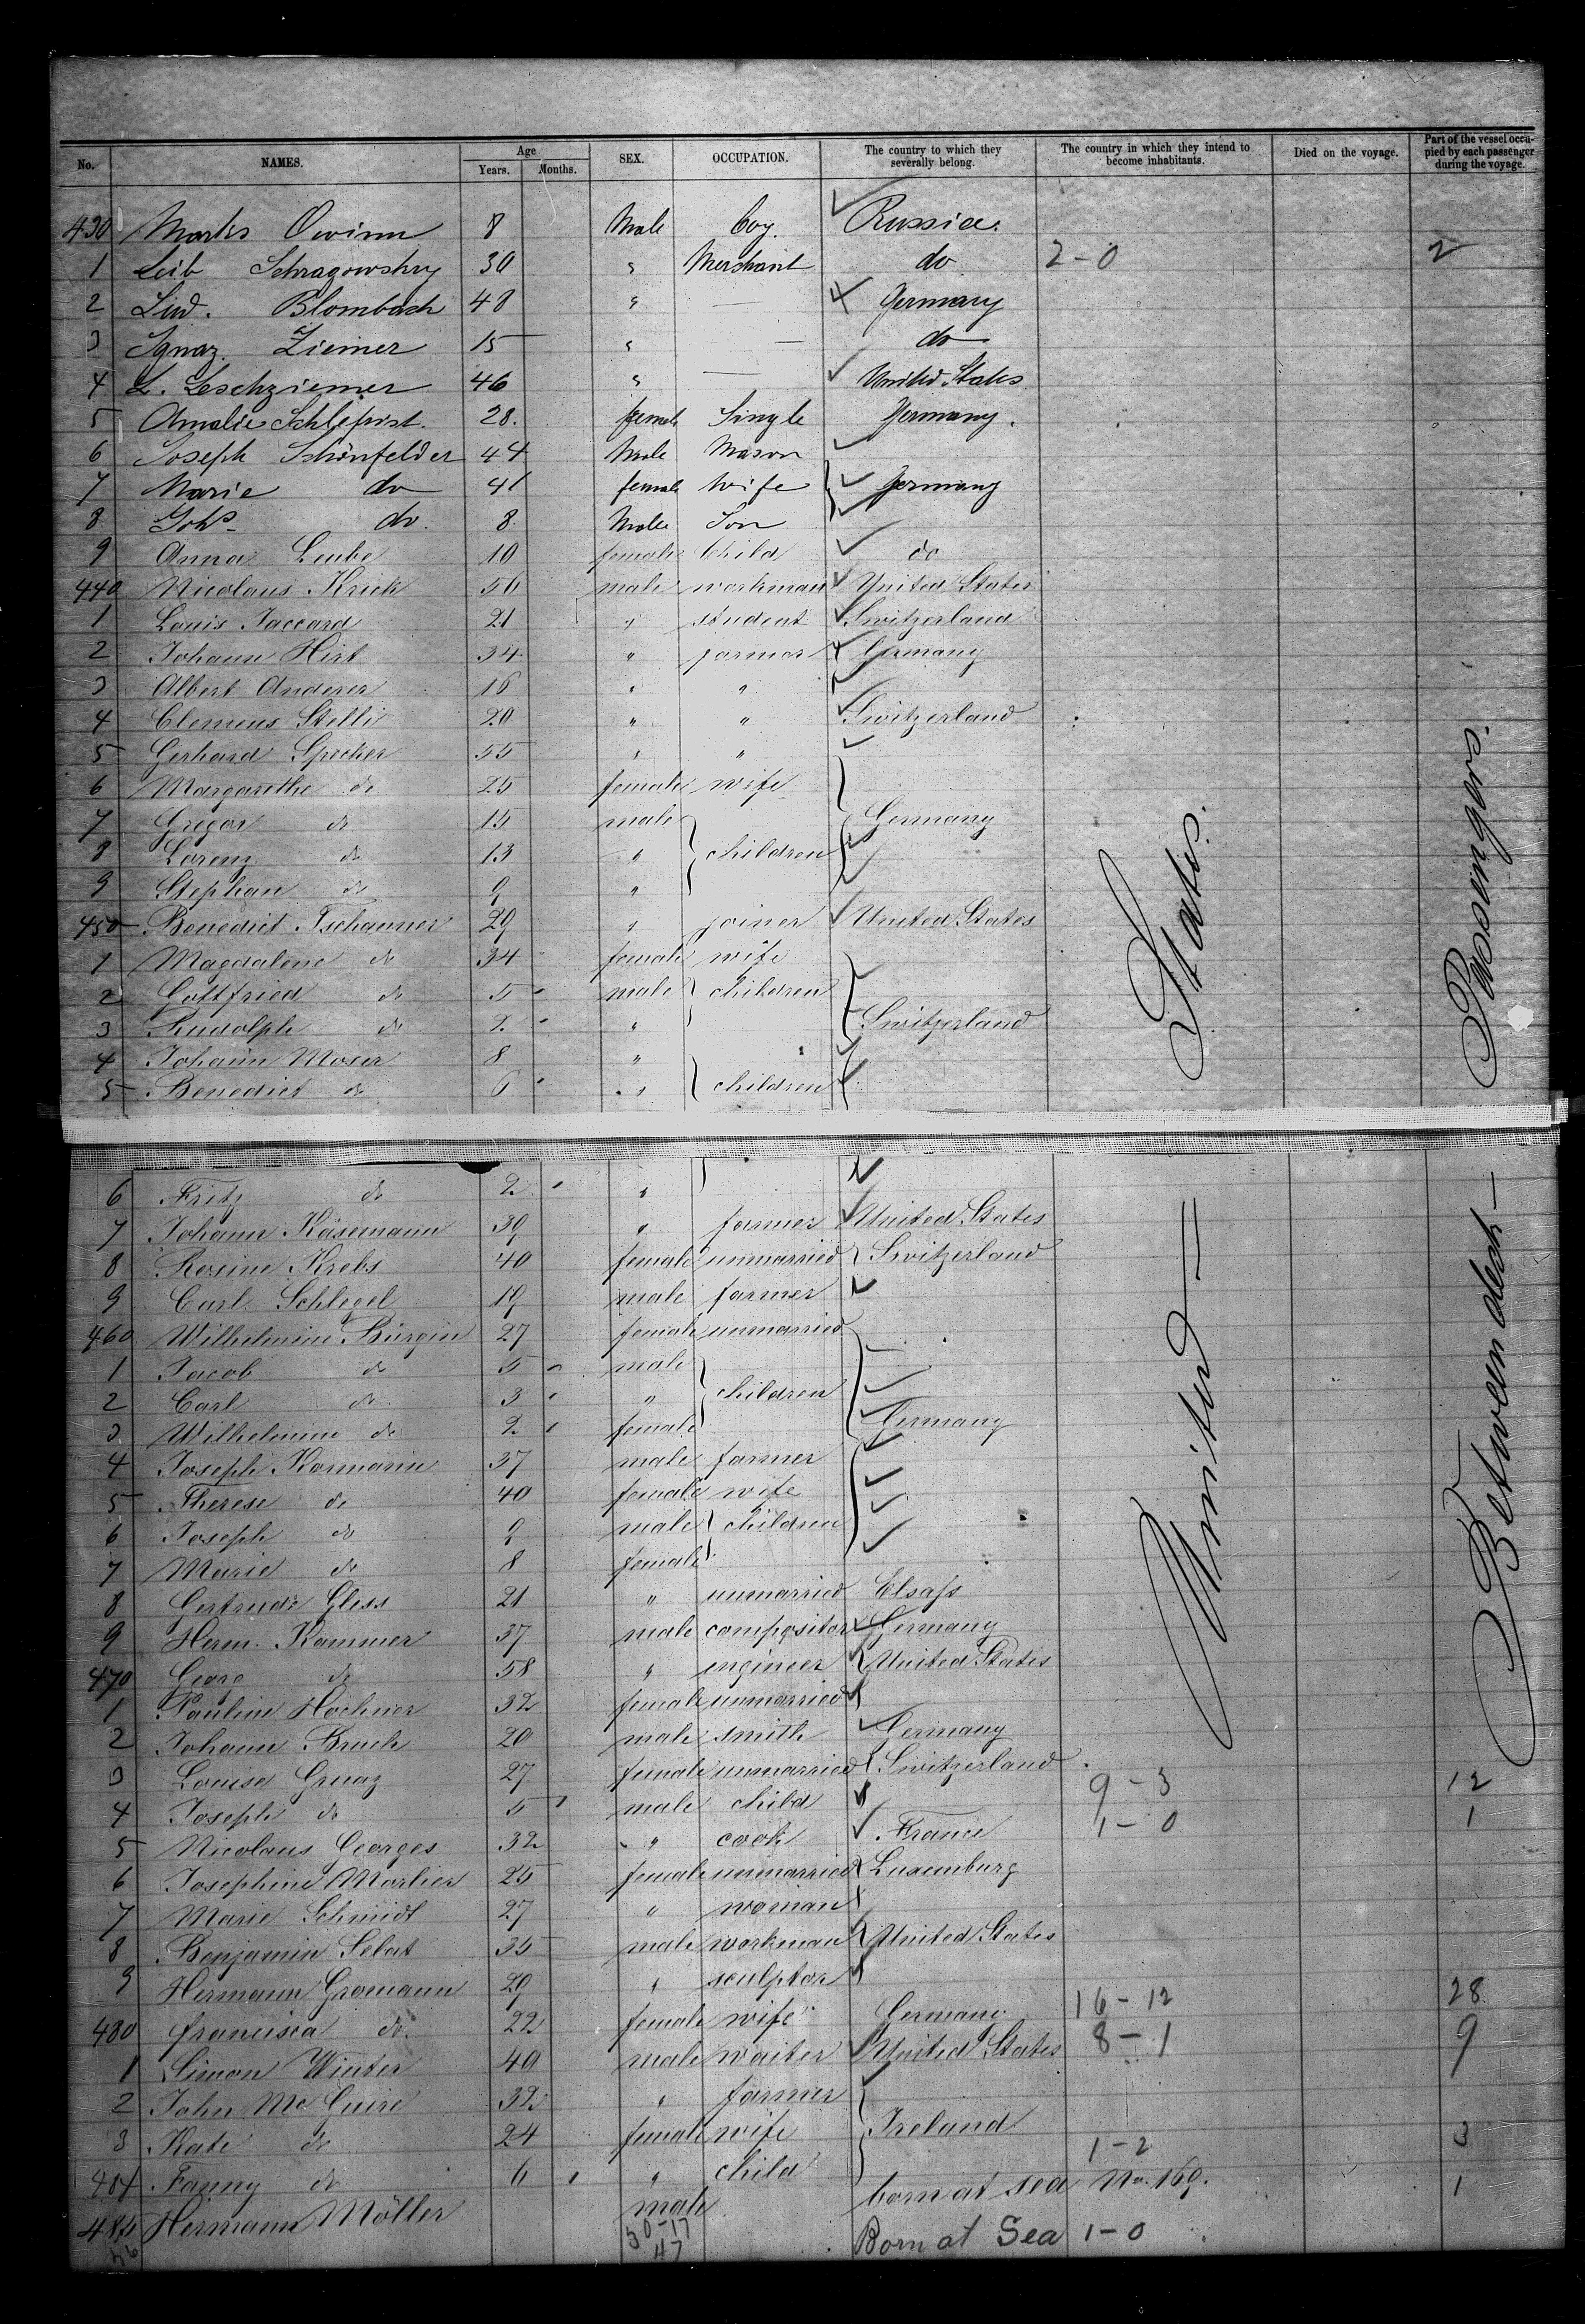 No. NAMES. Age Years. Months. SEX. OCCUPATION. The country to which they severally belong. The country in which they intend to become inhabitants. Died on the voyage. Part of the vessel occupied by each passenger during the voyage.
430 8 Male boy. Russia.
1 Leib Schragowskry 30 " Merchant do 2-0 2
2 Lud. Blombach 48 " — Germany
3 Ignaz Ziemer 15 " — do
4 L. Leschziemer 46 " — United States
5 Amalie 28. female Single Germany.
6 Joseph Schönfelder 44 Male Mason
7 Marie do 41 female Wife Germany
8 Johs do. 8. Male Son
9 Anna Leube 10 female Child do
440 Nicolaus Krick 56 male workman United States
1 Louis Jaccard 21 " student Switzerland
2 Johann Hirt 34 " farmer Germany
3 Albert Anderer 16 " "
4 Clemens Stelli 20 " " Switzerland
5 Gerhard Specker 55 " "
6 Margarethe do 25 female wife
7 Gregor do 15 male Germany
8 Lorenz do 13 " children
9 Stephan do 9 "
450 Benedict Tschanner 29 " joiner United States
1 Magdalene do 34 female wife
2 Gottfried do 5 male children
3 Rudolph do 2 " Switzerland
4 Johann Moser 8 "
5 Benedict do 6 " children
6 Fritz do 2 "
7 Johann Käsemann 39 " farmer United States
8 Rosine Krebs 40 female unmarried Switzerland
9 Carl Schlegel 19 male farmer
460 Wilhelmine Bürgin 27 female unmarried
1 Jacob do 5 male
2 Carl do 3 " children
3 Wilhelmine do 2 female Germany
4 Joseph Kormann 37 male farmer
5 Therese do 40 female wife
6 Joseph do 9 male children
7 Marie do 8 female
8 Gertrude Gless 21 " unmarried Elsass
9 Herm. Kammer 37 male compositor Germany
470 Georg do 58 " engineer United States
1 Pauline Hochner 32 female unmarried
2 Johann Bruck 20 male smith Germany
3 Louisa Gruaz 27 female unmarried Switzerland
4 Joseph do 5 male child 9-3 12
5 Nicolaus Georges 32 " cook France 1-0 1
6 Josephine Morlier 25 female unmarried Luxemburg
7 Marie Schmidt 27 " woman
8 Benjamin Selat 35 male workman United States
9 Hermann Gromann 29 " sculptor
480 Francisca do. 22 female wife Germany 16-12 28
1 Simon Winter 40 male waiter United States 8-1 9
2 John McGuire 32 " farmer
3 Kate do 24 female wife Ireland
484 Fanny do 6 " child 1-2 3
Hermann Möller male born at sea No. 169. 1
50-17
47
Born at Sea 1-0
United States.
Between deck Passengers.